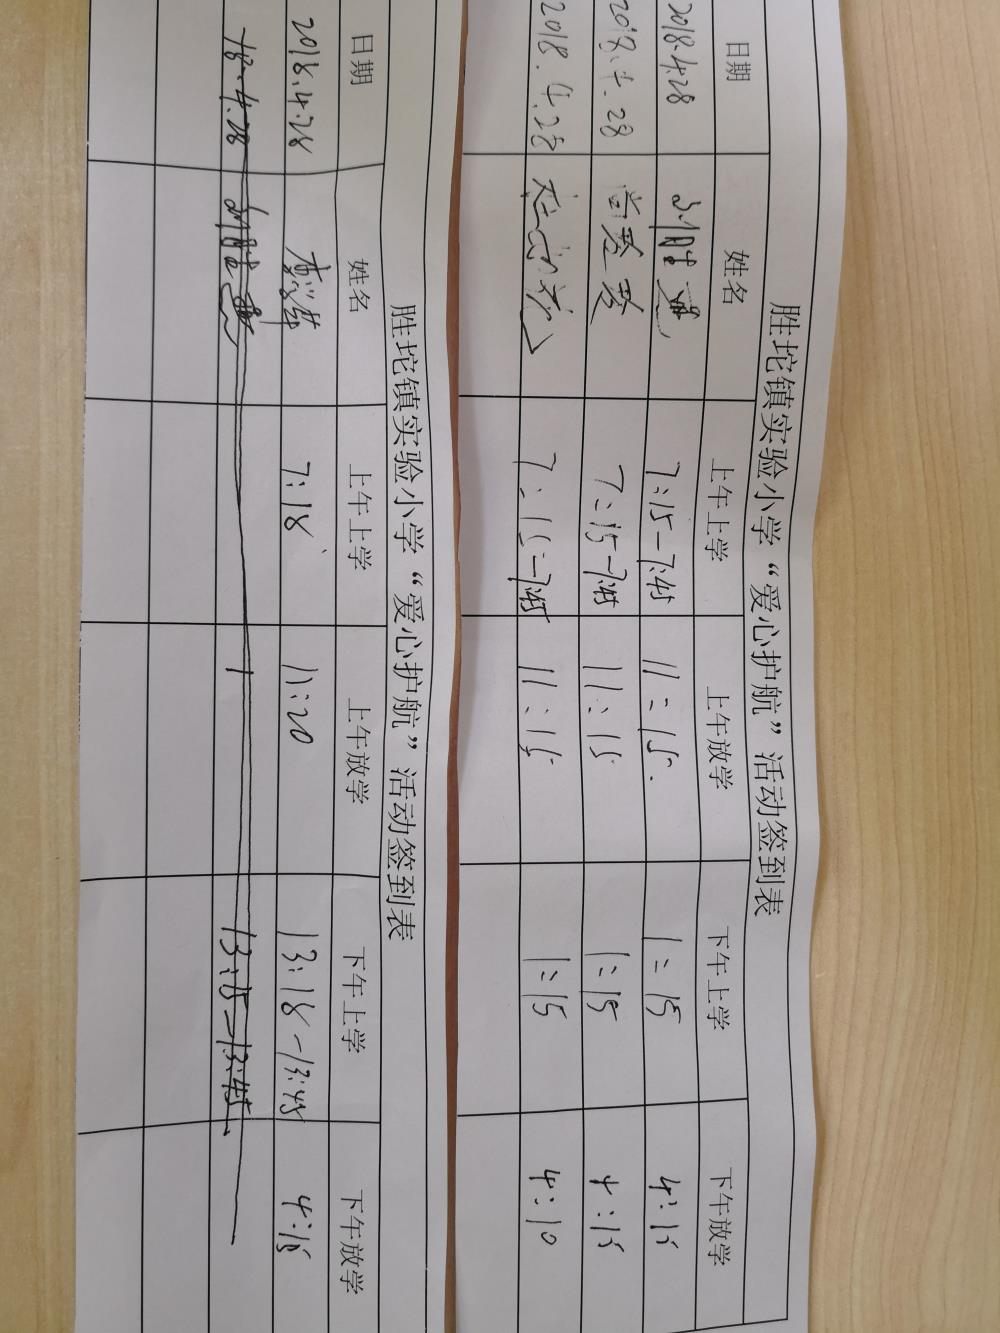 胜坨镇实验小学“爱心护航”活动签到表
日期 姓名 上午上学 上午放学 下午上学 下午放学
2018.4.28 刘胜 7:15-7:45 11:15. 1:15 4:15
2018.4.28 尚爱爱 7:15-7:45 11:15 1:15 4:15
2018.4.28 7:15-7:45 11:15 1:15 4:10
胜坨镇实验小学“爱心护航”活动签到表
日期 姓名 上午上学 上午放学 下午上学 下午放学
2018.4.28 李 7:18 11:20 13:18-13:45 4:15
18.4.28 刘胜 13:15-13:45